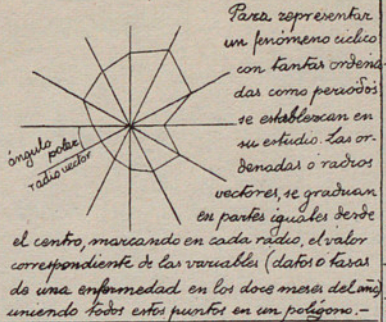 Para representar
un fenómeno cíclico
con tantas ordena
das como periodos
se establezcan en
su estudio. Las or-
denadas o radios
vectores, se graduan
en partes iguales desde
ángulo polar
radio vector
el centro, marcando en cada radio, el valor
correspondiente de las variables (datos o tasas
de una enfermedad en los doce meses del año)
uniendo todos estos puntos en un polígono.-